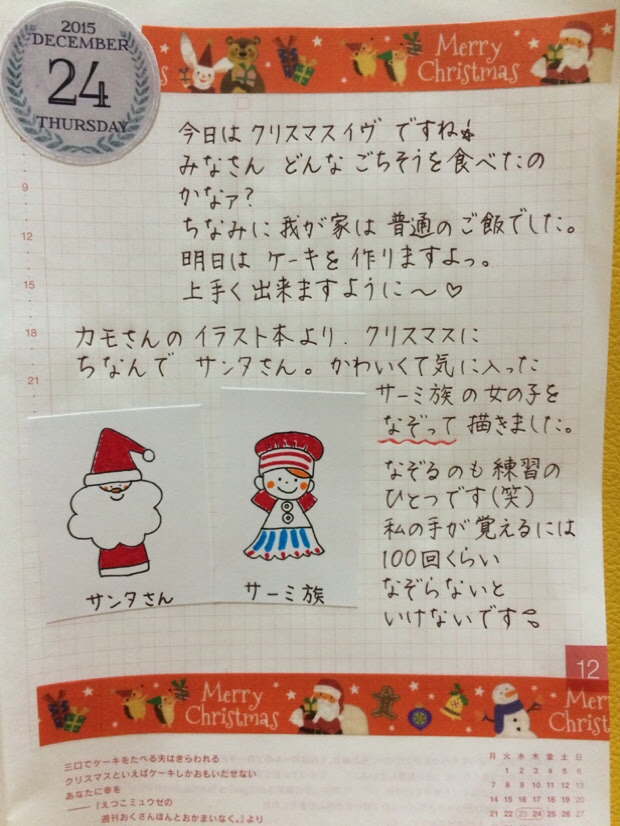 2015
DECEMBER
24
THURSDAY
Merry
Christmas
今日は クリスマスイヴ ですね
みなさん どんな ごちそうを 食べたの
かなァ?
ちなみに 我が家は 普通の ご飯でした。
明日は ケーキを 作りますよっ。
上手く 出来ますように〜♡
カモさんの イラスト本より. クリスマスに
ちなんで サンタさん。かわいくて 気に入った
サーミ族 の 女の子を
なぞって 描きました。
なぞるのも 練習の
ひとつです(笑)
私の手が 覚えるには
100回くらい
なぞらないと
いけないです
サンタさん
サーミ族
9
12
15
18
21
12
Merry
Christmas
Merry
Christ
三口でケーキをたべる夫はきらわれる
クリスマスといえばケーキしかおもいだせない
あなたに幸を
——『えつこミュウゼの
週刊おくさんほんとおかまいなく。』より
月 火 水 木 金 土 日
1 2 3 4 5 6
7 8 9 10 11 12 13
14 15 16 17 18 19 20
21 22 23 24 25 26 27